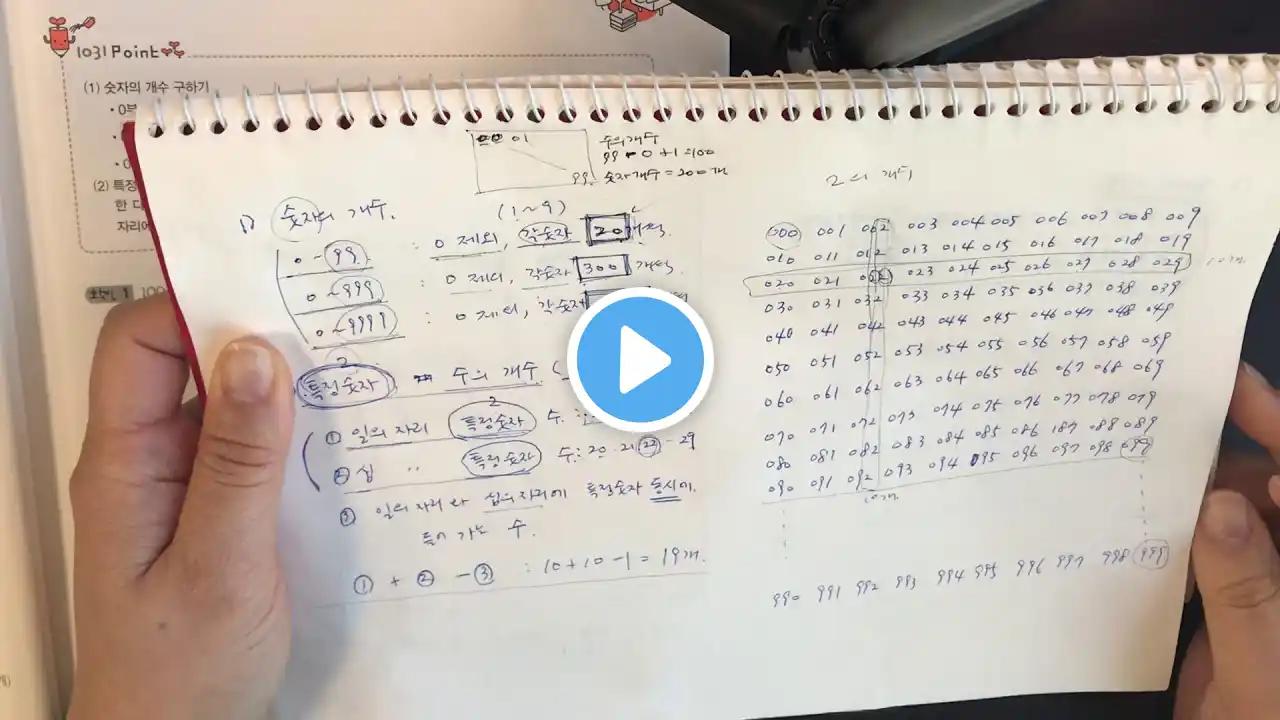 1031 Point
(1) 숫자의 개수 구하기
• 0부
(2) 특정
한 다
자리에
확인 1 100
01
99
수의 개수
99 - 0 + 1 = 100
숫자 개수 = 200개
1) 숫자의 개수.
(1~9)
0 ~ 99 : 0 제외, 각숫자 20 개씩.
0 ~ 999 : 0 제외, 각숫자 300 개씩.
0 ~ 9999 : 0 제외, 각숫자
2
특정숫자 수의 개수 (
① 일의 자리 특정숫자 수 :
2
② 십 〃 특정숫자 수 : 20 21 22 - 29
③ 일의 자리와 십의 자리에 특정숫자 동시에
들어가는 수.
① + ② - ③ : 10 + 10 - 1 = 19개.
2의 개수
000 001 002 003 004 005 006 007 008 009
010 011 012 013 014 015 016 017 018 019
020 021 022 023 024 025 026 027 028 029 10개
030 031 032 033 034 035 036 037 038 039
040 041 042 043 044 045 046 047 048 049
050 051 052 053 054 055 056 057 058 059
060 061 062 063 064 065 066 067 068 069
070 071 072 073 074 075 076 077 078 079
080 081 082 083 084 085 086 187 088 089
090 091 092 093 094 095 096 097 098 099
10개
990 991 992 993 994 995 996 997 998 999